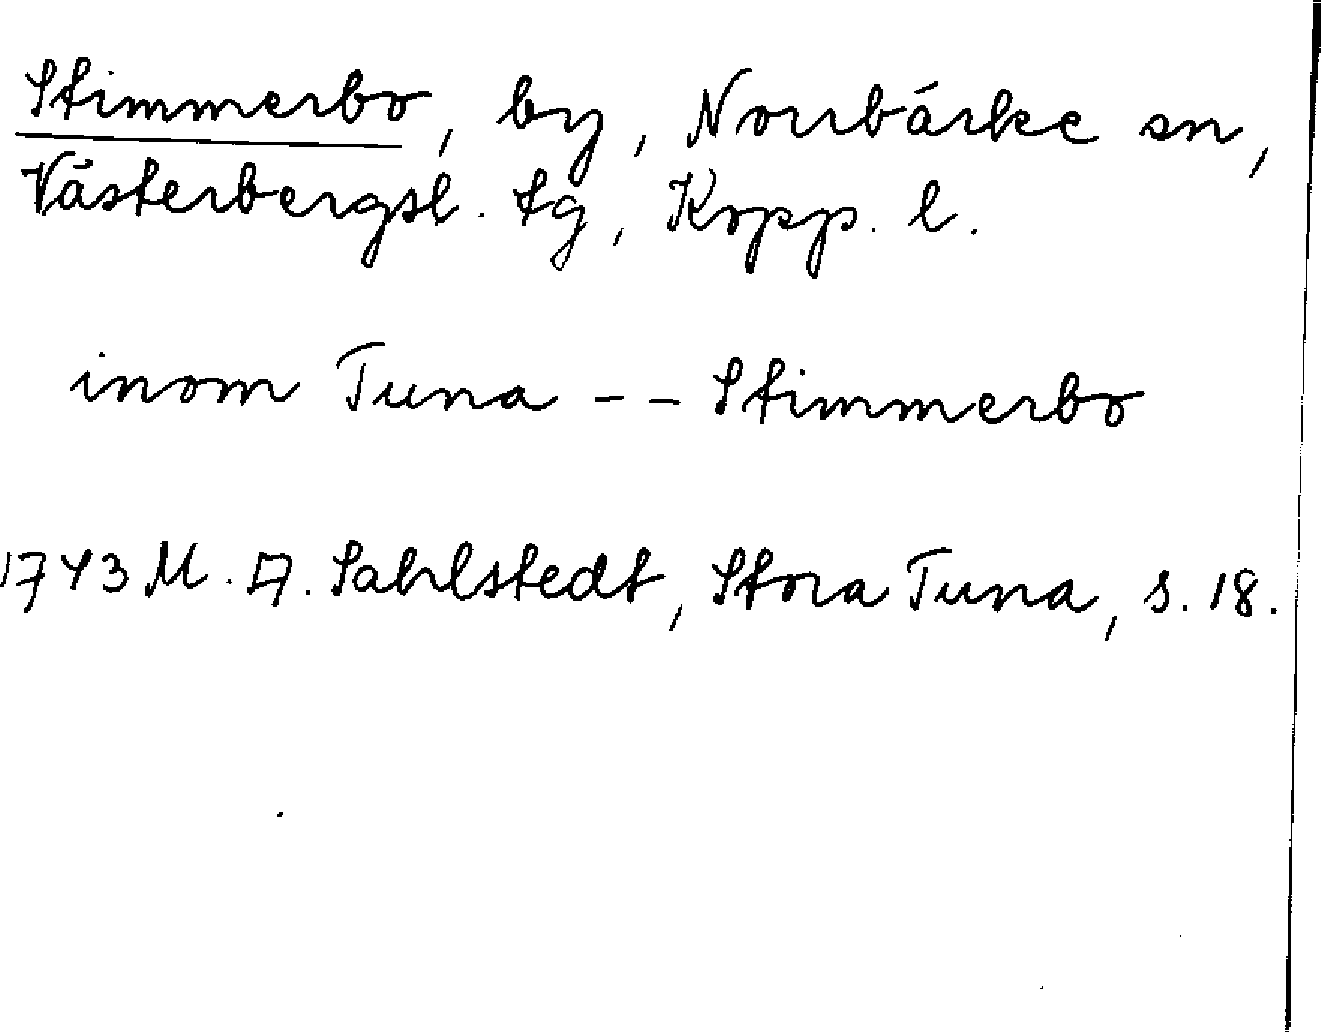 Stimmerbo, by, Norrbärke sn,
Västerbergsl. tg, Kopp. l.
inom Tuna -- Stimmerbo
1743 M. A. Sahlstedt, Stora Tuna, s. 18.